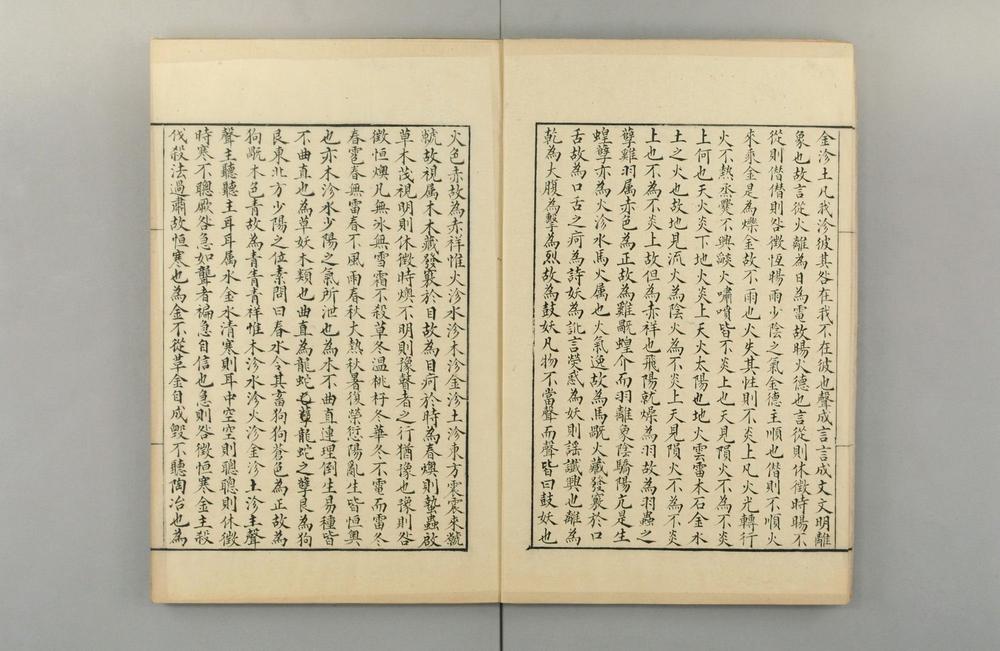 金沴土凡我沴彼其咎在我不在彼也聲成言言成文文明離
象也故言從火離為日為電故暘火德也言從則休徵時暘不
從則僣僣則咎徵恆暘雨少陰之氣金德主順也僣則不順火
來乘金是為爍金故不雨也火失其性則不炎上凡火光轉行
火不熱烝爨不興燄火嘯噴皆不炎上也天見隕火不為不炎
上何也天火炎下地火炎上天火太陽也地火雲雷木石金水
土之火也故地見流火為陰火為不炎上天見隕火不為不炎
上也不為不炎上故但為赤祥也飛陽就燥為羽故為羽蟲之
孽雞羽属赤色為正故為雞旤蝗介而羽離象陰驕陽亢是生
蝗孽亦為火沴水馬火属也火氣逸故為馬旤火藏發竅於口
舌故為口舌之疴為詩妖為訛言熒惑為妖則謠讖興也離為
乾為大腹為擊為烈故為鼓妖凡物不當聲而聲皆曰鼓妖也
火色赤故為赤祥惟火沴水沴木沴金沴土沴東方震震來虩
虩故視属木木藏發竅於目故為目疴於時為春燠則蟄蟲啟
草木茂視明則休徵時燠不明則豫瞽者之行猶豫也豫則咎
徵恒燠凡無冰無雪霜不殺草冬溫桃杍冬華冬不電而雷冬
春雹春無雷春不風雨春秋大熱秋暑復榮愆陽亂生皆恒奧
也亦木沴水少陽之氣所泄也為木不曲直連理倒生易種皆
不曲直也為草妖木類也曲直為龍蛇之孽龍蛇之孽艮為狗
艮東北方少陽之位素問曰春水令其畜狗狗蒼色為正故為
狗旤木色青故為青眚青祥惟木沴水沴火沴金沴土沴主聲
聲主聽聽主耳耳属水金水清寒則耳中空空則聰聰則休徵
時寒不聰厥咎急如聾者褊急自信也急則咎徵恒寒金主殺
伐殺法過肅故恒寒也為金不從革金自成毀不聽陶冶也為